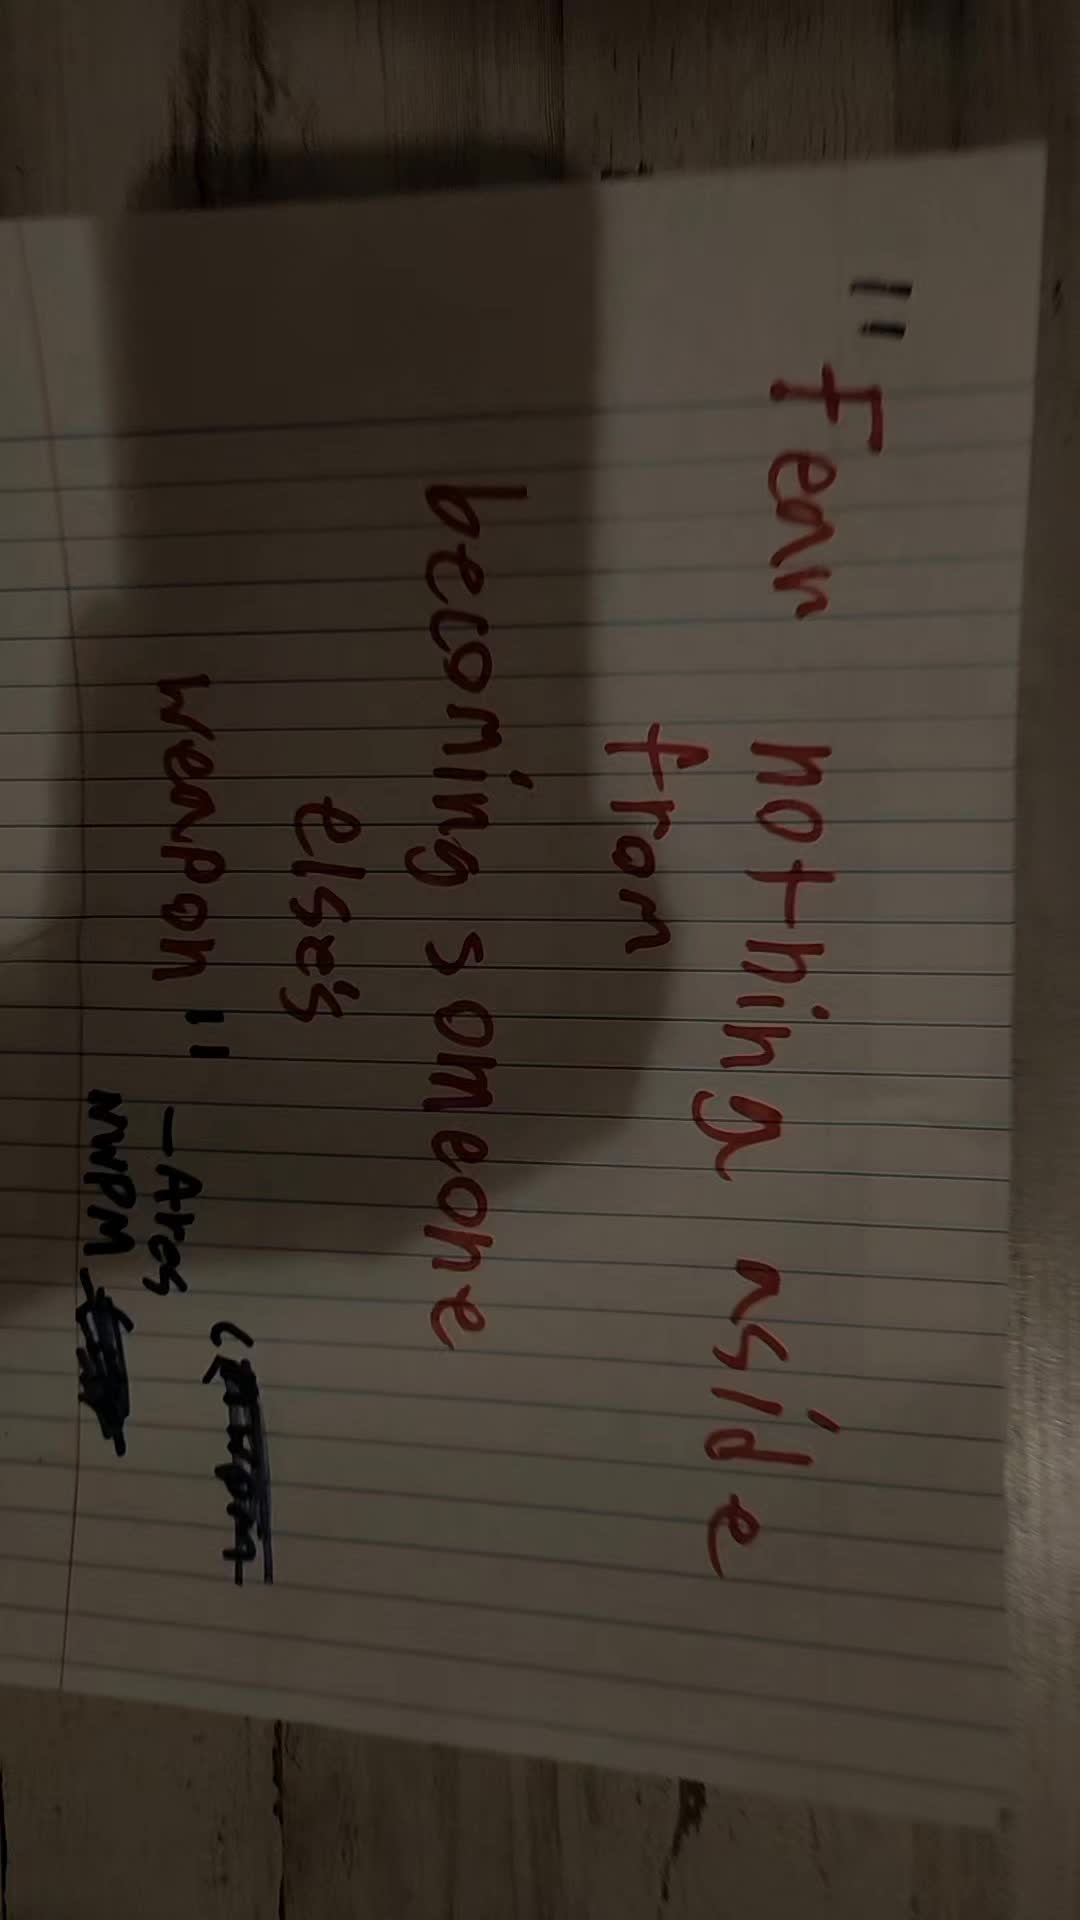 "Fear nothing aside
from
becoming someone
else's
weapon"
-Ares
NWPM